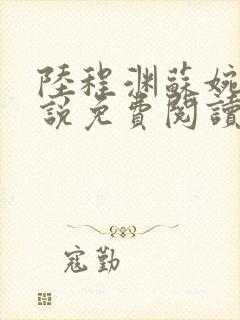 陸程渊蘇婉
說免費閱讀
寇勤